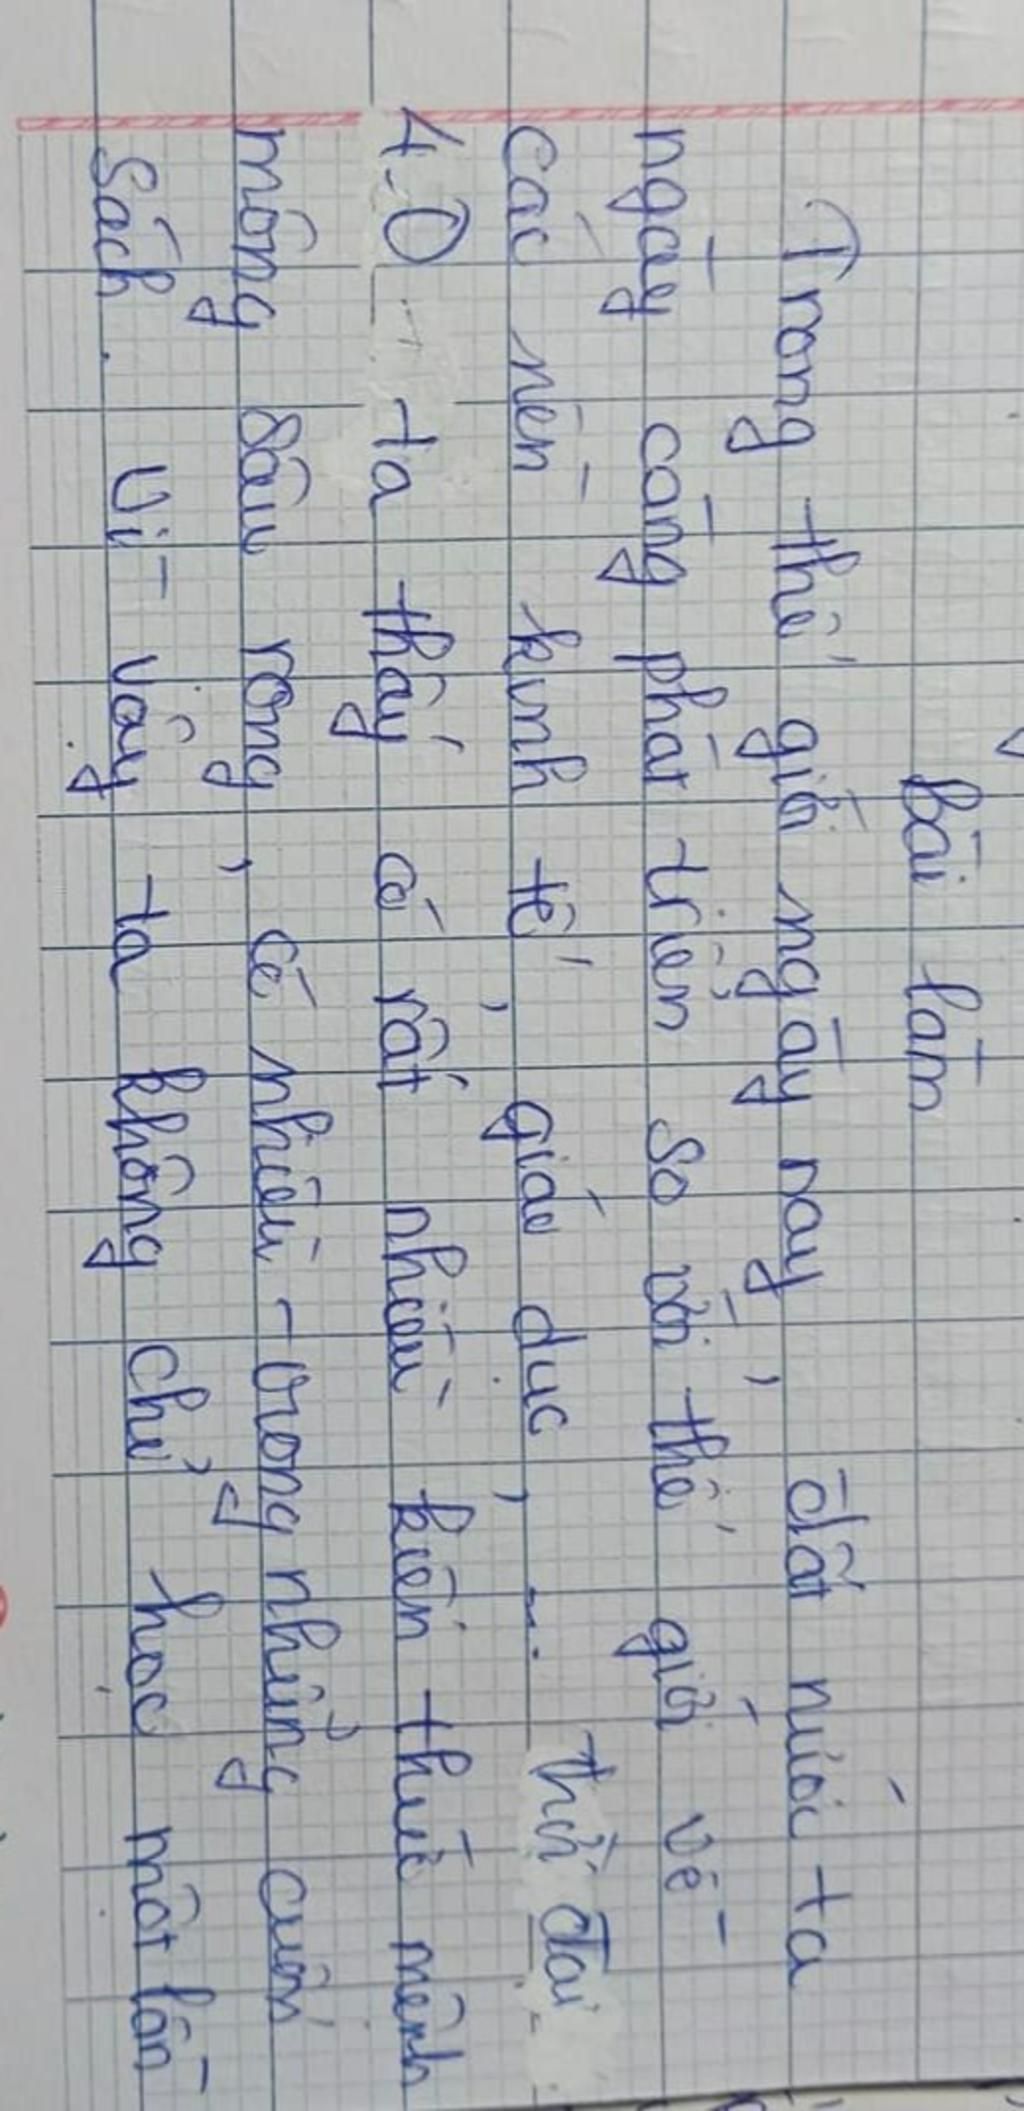 bài làm
Trong thế giới ngày nay, đất nước ta
ngày càng phát triển so với thế giới về
các nền kinh tế, giáo dục, ... thời đại
4.0 ta thấy có rất nhiều kiến thức mênh
mông sâu rộng, có nhiều trong những cuốn
sách. Vì vậy ta không chỉ học một lần